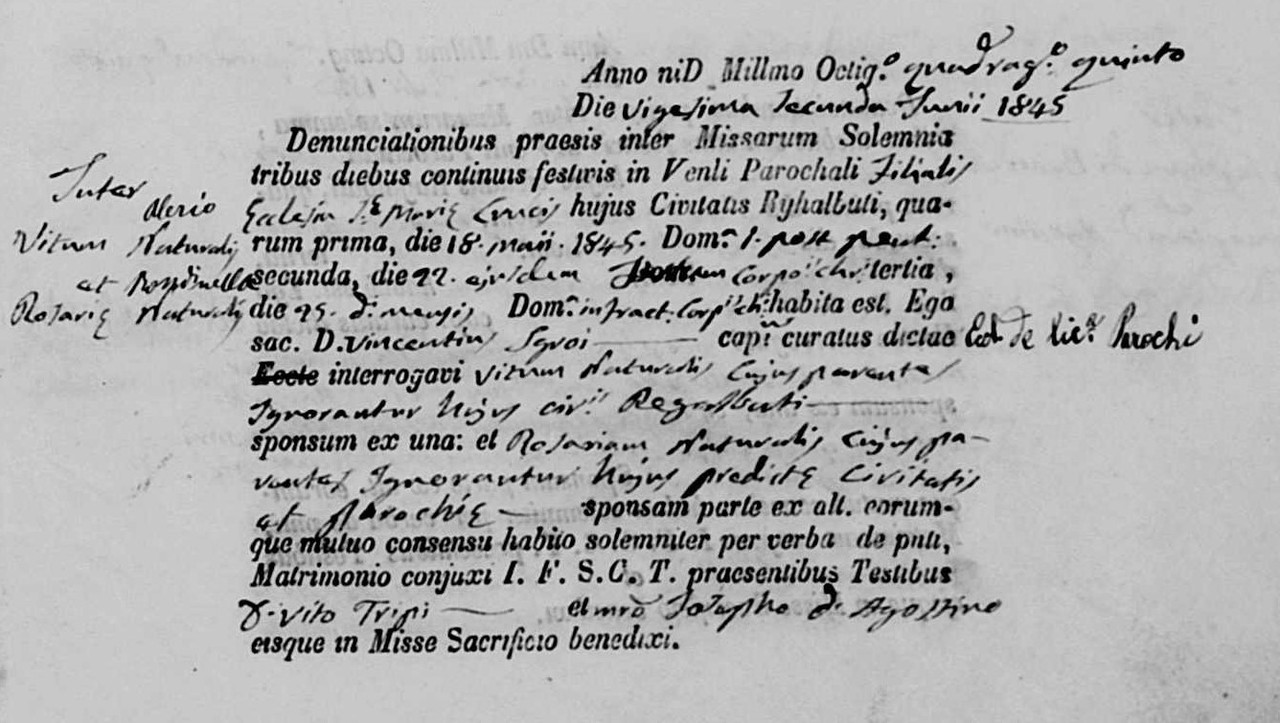 Anno niD Millmo Octig.º quadrag.º quinto
Die vigesima secunda Junii 1845
Denunciationibus praesis inter Missarum Solemnia
tribus diebus continuis festivis in Venli Parochali Filialis
Ecclesia S.ę Marię Crucis hujus Civitatis Ryhalbuti, qua-
rum prima, die 18. maii. 1845. Dom.ª 1. post pent:
secunda, die 22. ejusdem Corpo.s chr. tertia,
die 25. d.º mensis Dom.ª infract. Corp.s ch. habita est. Ego
sac. D. Vincentius Sgroi cap.s curatus dictae Eccl. de lic.ª Parochi
Eccle interrogavi Vitum Naturalis Cujus parentes
Ignorantur hujus civ.is Regalbuti
sponsum ex una: et Rosariam Naturalis Cujus pa-
rentes Ignorantur hujus predictę Civitatis
et Parochię sponsam parte ex alt. eorum-
que mutuo consensu habito solemniter per verba de puti,
Matrimonio conjuxi I. F. S. C. T. praesentibus Testibus
D. Vito Tripi et mro Josepho d' Agostino
eisque in Misse Sacrificio benedixi.
Inter
Vitum Naturalis
et
Rosarię Naturalis